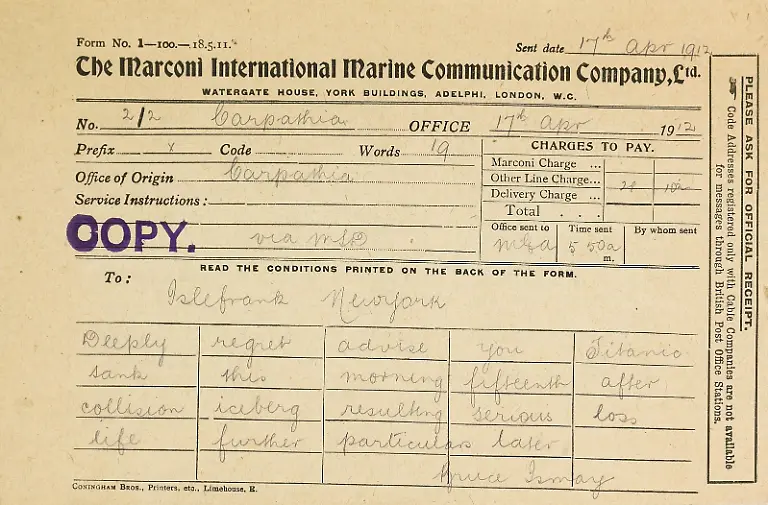 Form No. 1—100.—18.5.11.
Sent date 17th Apr 1912
The Marconi International Marine Communication Company, Ltd.
WATERGATE HOUSE, YORK BUILDINGS, ADELPHI, LONDON, W.C.
No. 2/2 Carpathia OFFICE 17th Apr 1912
Prefix Code Words 19
CHARGES TO PAY.
Marconi Charge ...
Office of Origin Carpathia
Other Line Charge...
Delivery Charge ...
Service Instructions :
Total . . .
COPY.
via MSD
Office sent to Time sent By whom sent
MEA 5 50a
m.
READ THE CONDITIONS PRINTED ON THE BACK OF THE FORM.
To :
Islefrank Newyork
Deeply regret advise you Titanic
sank this morning fifteenth after
collision iceberg resulting serious loss
life further particulars later
Bruce Ismay
CONINGHAM BROS., Printers, etc., Limehouse, E.
PLEASE ASK FOR OFFICIAL RECEIPT.
Code Addresses registered only with Cable Companies are not available
for messages through British Post Office Stations.